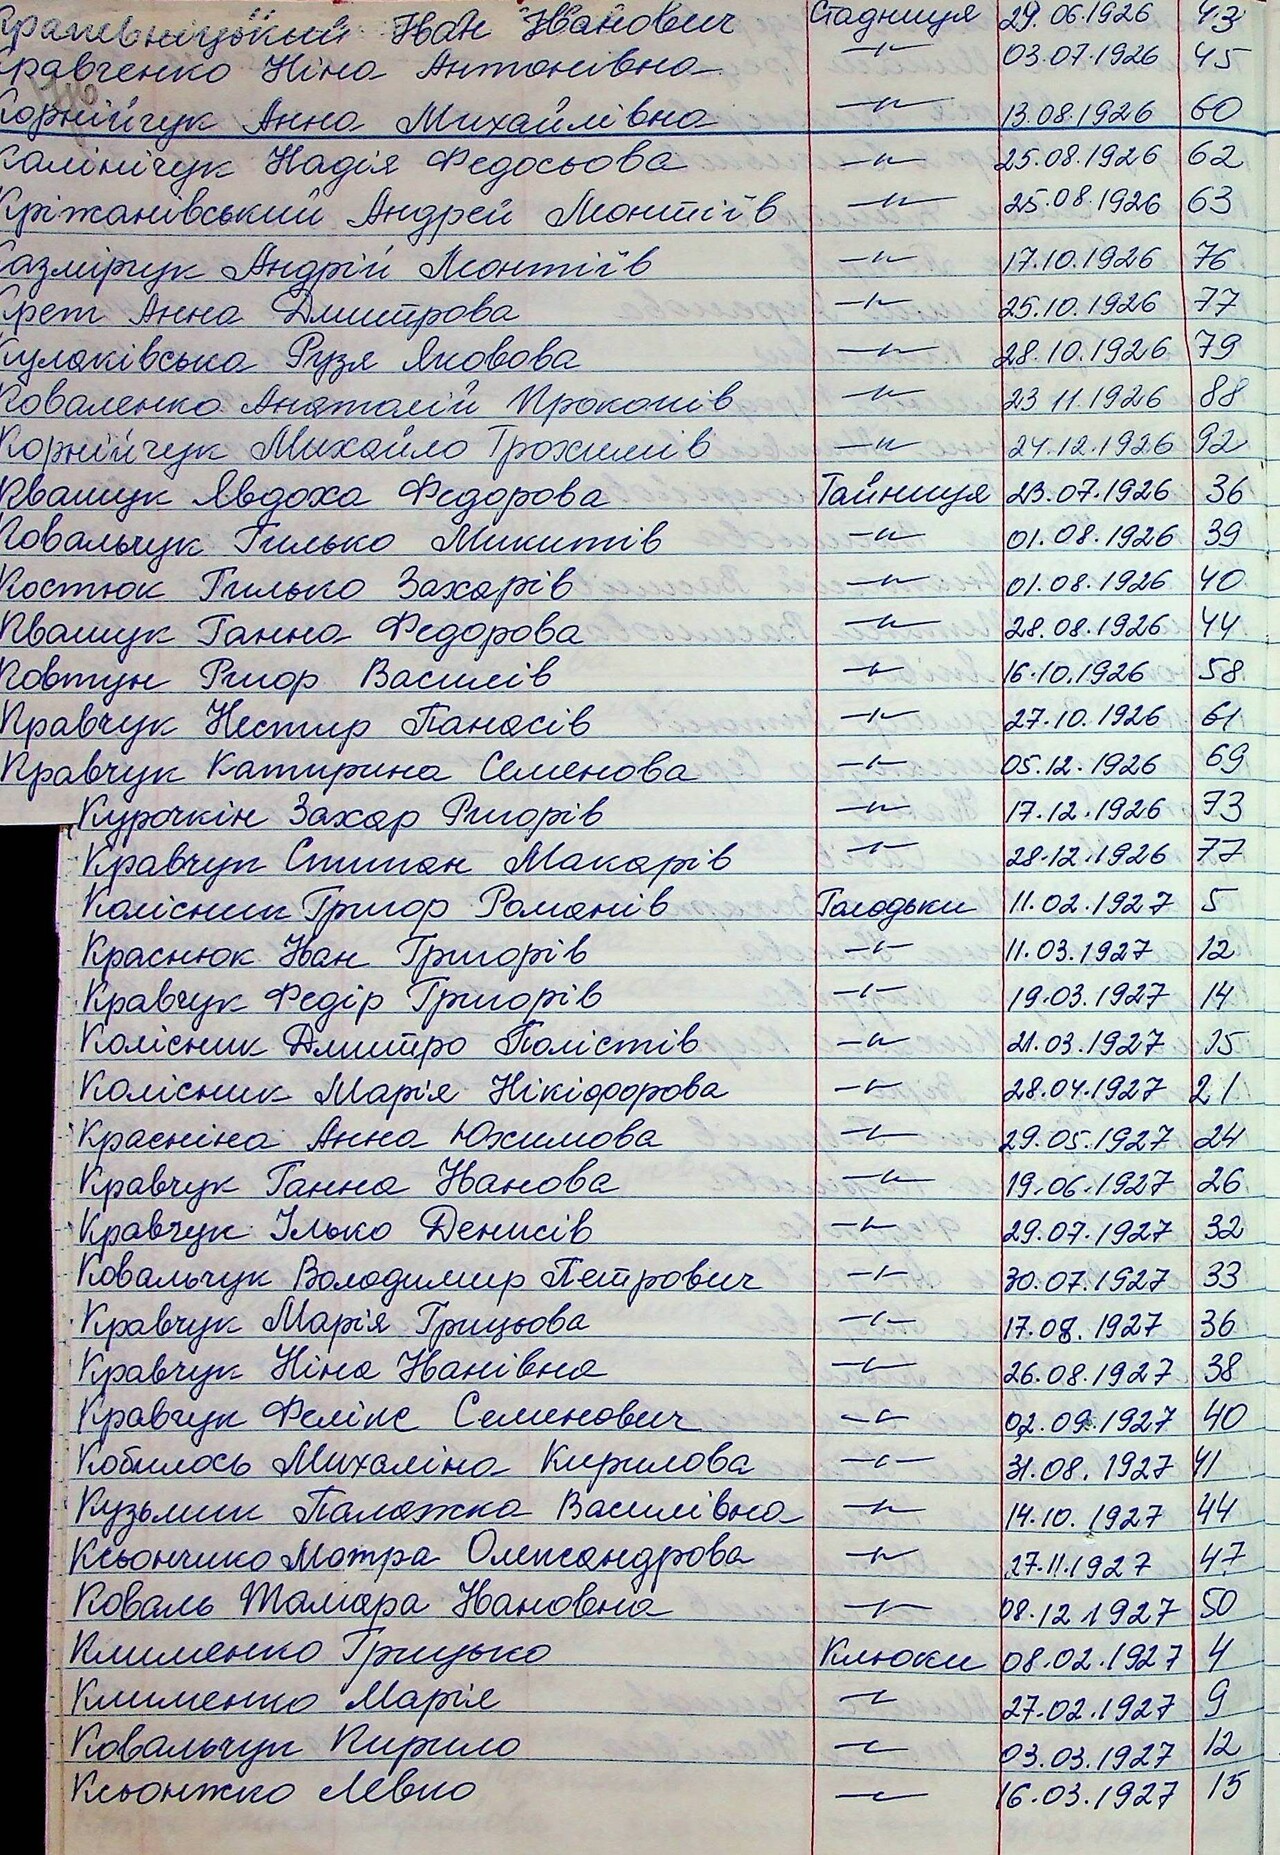 Іван Іванович Стадниця 29.06.1926 43
Кравченко Ніна Антонівна —"— 03.07.1926 45
Корнійчук Анна Михайлівна —"— 13.08.1926 60
Калінічук Надія Федосьова —"— 25.08.1926 62
Кріжанівський Андрей Монтіїв —"— 25.08.1926 63
Казмірчук Андрій Монтіїв —"— 17.10.1926 76
Крет Анна Дмитрова —"— 25.10.1926 77
Кулаківська Рузя Яковова —"— 28.10.1926 79
Коваленко Анатолій Прокопів —"— 23 11.1926 88
Корнійчук Михайло Трохимів —"— 24.12.1926 92
Квашук Явдоха Федорова Тайниця 23.07.1926 36
Ковальчук Гилько Микитів —"— 01.08.1926 39
Костюк Гилько Захарів —"— 01.08.1926 40
Квашук Ганна Федорова —"— 28.08.1926 44
Ковтун Ригор Василів —"— 16.10.1926 58
Кравчук Нестир Панасів —"— 27.10.1926 61
Кравчук Катирина Семенова —"— 05.12.1926 69
Курочкін Захар Ригорів —"— 17.12.1926 73
Кравчук Стипан Макарів —"— 28.12.1926 77
Колісник Григор Романів Голодьки 11.02.1927 5
Краснюк Іван Григорів —"— 11.03.1927 12
Кравчук Федір Григорів —"— 19.03.1927 14
Колісник Дмитро Полістів —"— 21.03.1927 15
Колісник Марія Нікіфорова —"— 28.04.1927 21
Красніна Анна Юхимова —"— 29.05.1927 24
Кравчук Ганна Іванова —"— 19.06.1927 26
Кравчук Ілько Денисів —"— 29.07.1927 32
Ковальчук Володимир Петрович —"— 30.07.1927 33
Кравчук Марія Грицьова —"— 17.08.1927 36
Кравчук Ніна Іванівна —"— 26.08.1927 38
Кравчук Фелікс Семенович —"— 02.09.1927 40
Кобилось Михаліна Кирилова —"— 31.08.1927 41
Кузьмик Палажка Василівна —"— 14.10.1927 44
Ксьончико Мотра Олександрова —"— 27.11.1927 47
Коваль Тамара Івановна —"— 08.12 1927 50
Клименко Грицько Клюки 08.02.1927 4
Клименко Марія —"— 27.02.1927 9
Ковальчук Кирило —"— 03.03.1927 12
Ксьонжко Левко —"— 16.03.1927 15